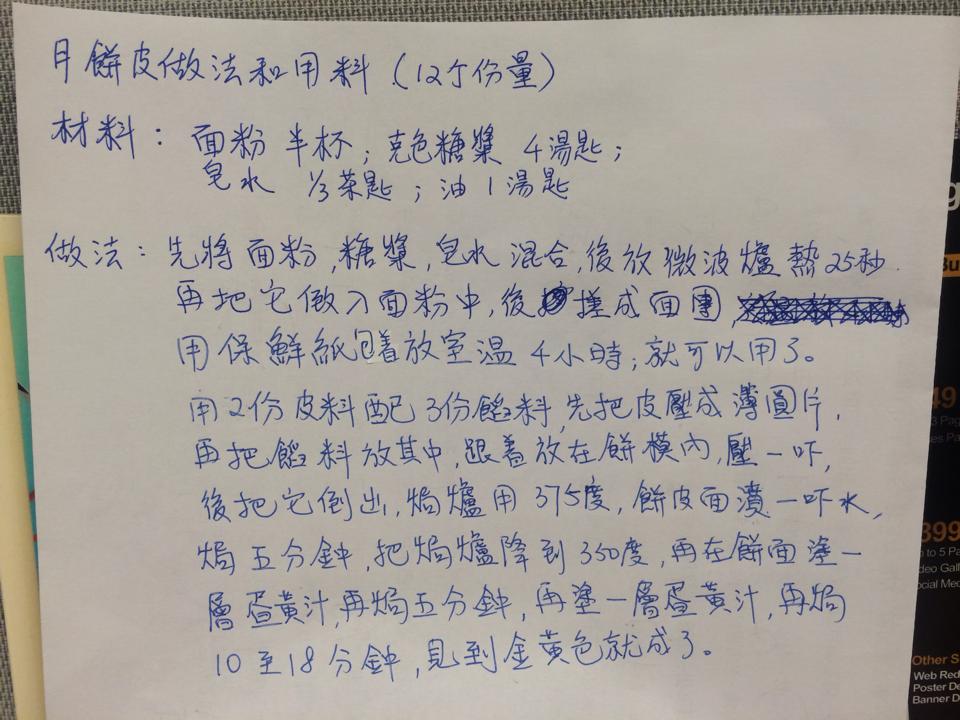 月餅皮做法和用料（12个份量）
材料：面粉 半杯；克色糖漿 4湯匙；
皂水 1/3茶匙；油 1湯匙
做法：先將面粉，糖漿，皂水 混合，後放 微波爐 熱25秒
再把它做入面粉中，後 搓成面團，
用保鮮紙包着放室温 4小時；就可以用了。
用2份皮料配3份餡料，先把皮壓成薄圓片，
再把餡料放其中，跟着放在餅模內，壓一吓，
後把它倒出，焗爐用375度，餅皮面濆一吓水，
焗五分鈡，把焗爐降到350度，再在餅面塗一
層蛋黃汁，再焗五分鈡，再塗一層蛋黃汁，再焗
10至18分鈡，見到金黃色就成了。
399
Other S
Web Red
Poster De
Banner D